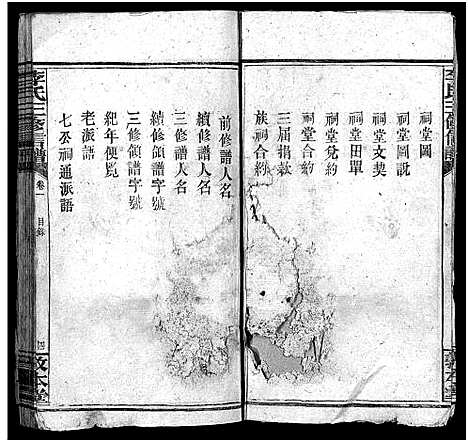 祠堂圖
祠堂圖說
祠堂文契
祠堂田單
祠堂兌約
祠堂合約
三届捐欵
族祠合約
前修譜人名
續修譜人名
三修譜人名
續修領譜字號
三修領譜字號
紀年便覧
老派語
七公祠通派語
李氏三修
譜
卷一
目錄
敦本堂